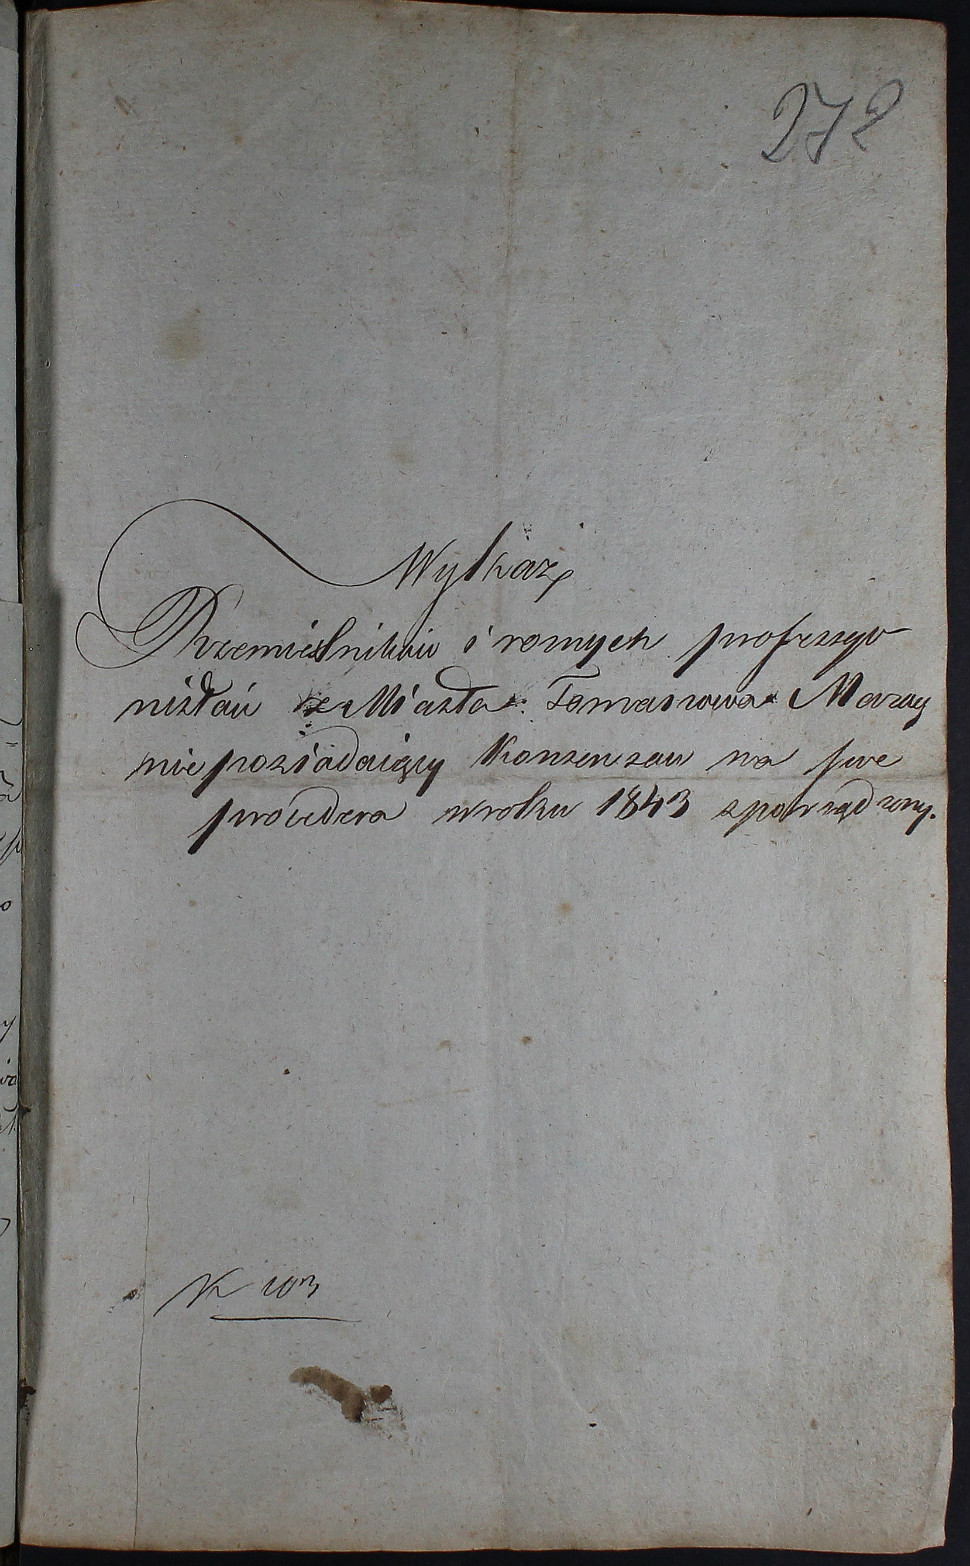 272
Wykaz
Rzemieslników i roznych professyo
nistów z Miasta Tomaszowa Mazow
nieposiadaiący Konsensow na swe
procedera w roku 1843 sporządzony.
N 103